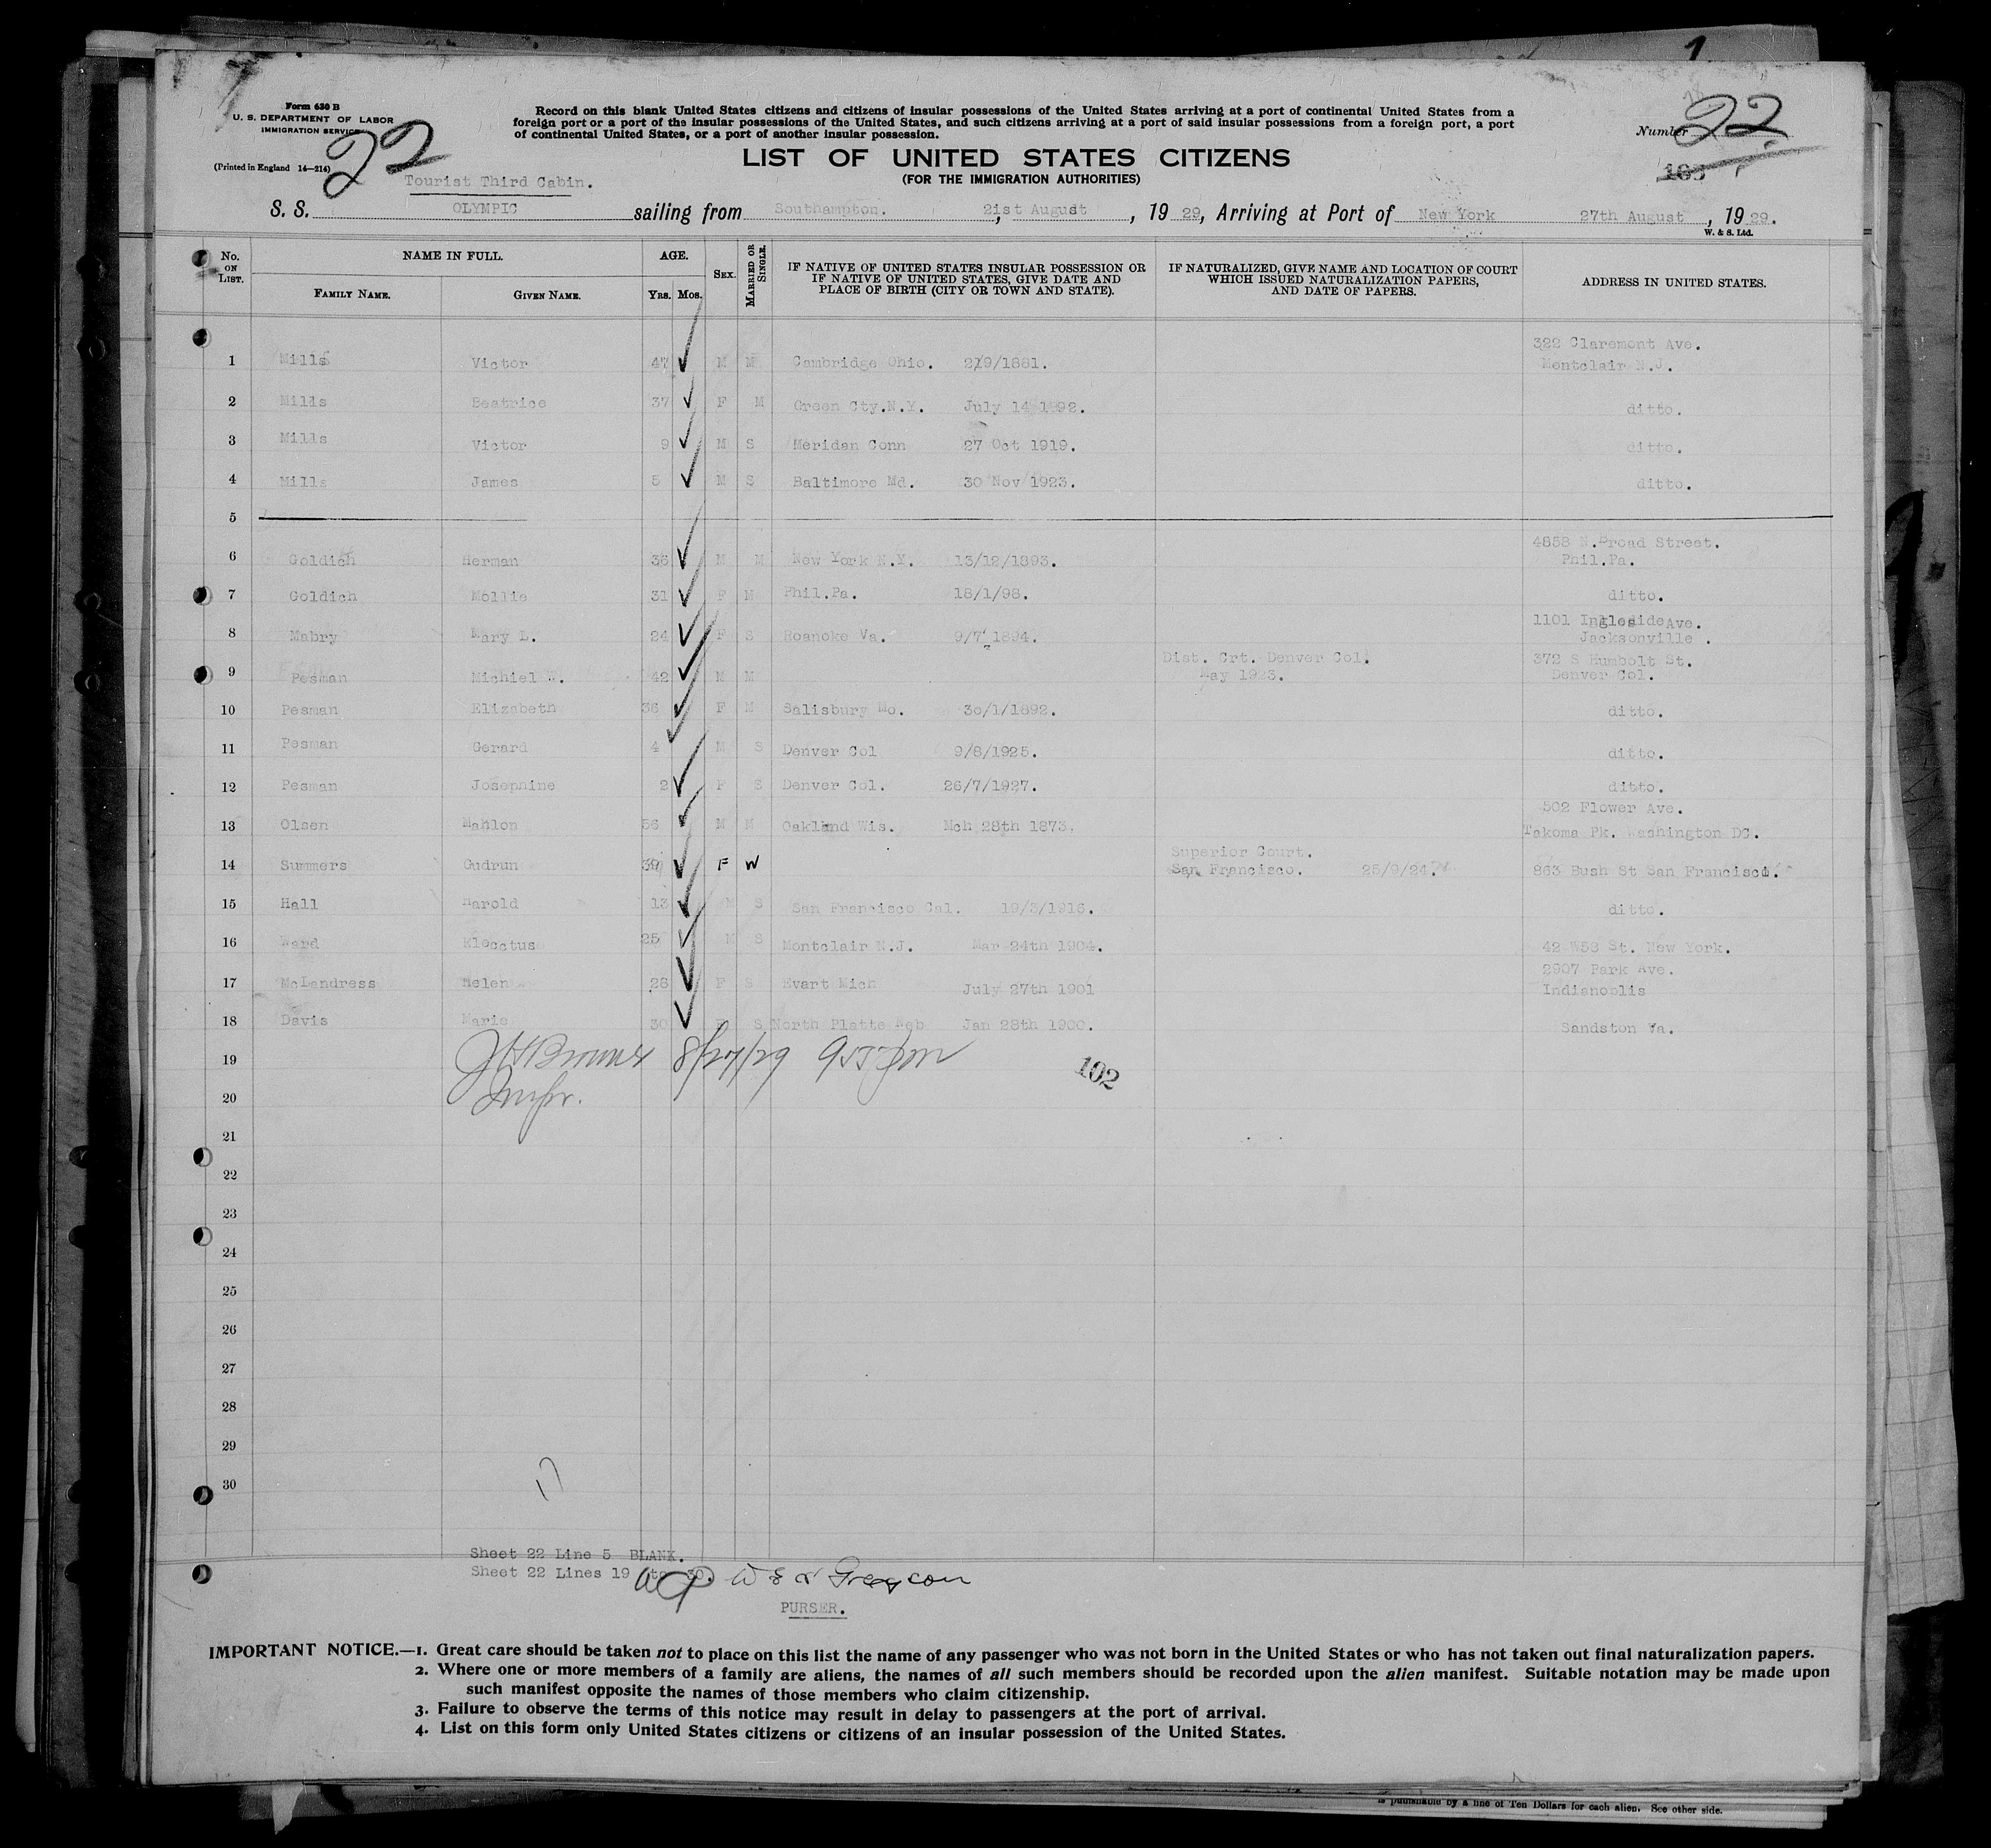 1
Form 630 B
U. S. DEPARTMENT OF LABOR
IMMIGRATION SERVICE
(Printed in England 14—214)
22
Record on this blank United States citizens and citizens of insular possessions of the United States arriving at a port of continental United States from a
foreign port or a port of the insular possessions of the United States, and such citizens arriving at a port of said insular possessions from a foreign port, a port
of continental United States, or a port of another insular possession.
Number 22
LIST OF UNITED STATES CITIZENS
(FOR THE IMMIGRATION AUTHORITIES)
Tourist Third Cabin.
S. S. OLYMPIC sailing from Southampton. 21st August, 19 29, Arriving at Port of New York 27th August, 19 29.
W. & S. Ltd.
No. ON LIST. NAME IN FULL. AGE. SEX. MARRIED OR SINGLE. IF NATIVE OF UNITED STATES INSULAR POSSESSION OR IF NATIVE OF UNITED STATES, GIVE DATE AND PLACE OF BIRTH (CITY OR TOWN AND STATE). IF NATURALIZED, GIVE NAME AND LOCATION OF COURT WHICH ISSUED NATURALIZATION PAPERS, AND DATE OF PAPERS. ADDRESS IN UNITED STATES.
FAMILY NAME. GIVEN NAME. YRS. MOS.
322 Claremont Ave.
1 Mills Victor 47 M M Cambridge Ohio. 2/9/1881. Montclair N.J.
2 Mills Beatrice 37 F M Green Cty.N.Y. July 14 1892. ditto.
3 Mills Victor 9 M S Meridan Conn 27 Oct 1919. ditto.
4 Mills James 5 M S Baltimore Md. 30 Nov 1923. ditto.
5
4858 N.Broad Street.
6 Goldich Herman 36 M M New York N.Y. 13/12/1893. Phil.Pa.
7 Goldich Mollie 31 F M Phil.Pa. 18/1/98. ditto.
1101 Ingleside Ave.
8 Mabry Mary L. 24 F S Roanoke Va. 9/7 1894. Jacksonville.
Dist. Crt. Denver Col. 372 S Humbolt St.
9 Pesman Michiel W. 42 M M May 1923. Denver Col.
10 Pesman Elizabeth 36 F M Salisbury Mo. 30/1/1892. ditto.
11 Pesman Gerard 4 M S Denver Col 9/8/1925. ditto.
12 Pesman Josephine 2 F S Denver Col. 26/7/1927. ditto.
502 Flower Ave.
13 Olsen Mahlon 56 M M Oakland Wis. Mch 28th 1873. Takoma Pk. Washington DC.
Superior Court.
14 Summers Gudrun 39 F W San Francisco. 25/9/24. 863 Bush St San Francisco.
15 Hall Harold 13 M S San Francisco Cal. 19/3/1916. ditto.
16 Ward Elocatus 25 M S Montclair N.J. Mar 24th 1904. 42 W58 St. New York.
2907 Park Ave.
17 McLandress Helen 28 F S Evart Mich July 27th 1901 Indianoblis
18 Davis Marie 30 F S North Platte Neb Jan 28th 1900. Sandston Va.
19 8/27/29
102
20
21
22
23
24
25
26
27
28
29
30
Sheet 22 Line 5 BLANK.
Sheet 22 Lines 19 to 30.
PURSER.
IMPORTANT NOTICE.—1. Great care should be taken not to place on this list the name of any passenger who was not born in the United States or who has not taken out final naturalization papers.
2. Where one or more members of a family are aliens, the names of all such members should be recorded upon the alien manifest. Suitable notation may be made upon
such manifest opposite the names of those members who claim citizenship.
3. Failure to observe the terms of this notice may result in delay to passengers at the port of arrival.
4. List on this form only United States citizens or citizens of an insular possession of the United States.
is punishable by a fine of Ten Dollars for each alien. See other side.